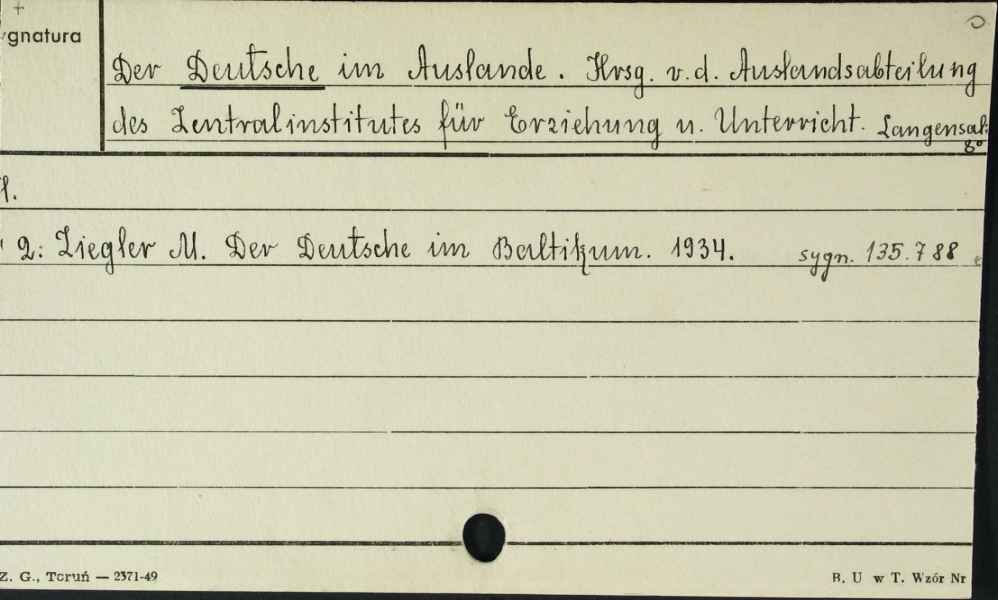 +
ygnatura
Der Deutsche im Auslande. Hrsg. v. d. Auslandsabteilung
des Zentralinstitutes für Erziehung u. Unterricht. Langensal-
8°
2: Ziegler M. Der Deutsche im Baltikum. 1934. sygn. 135.788
Z. G., Toruń — 2371-49
B. U w T. Wzór Nr